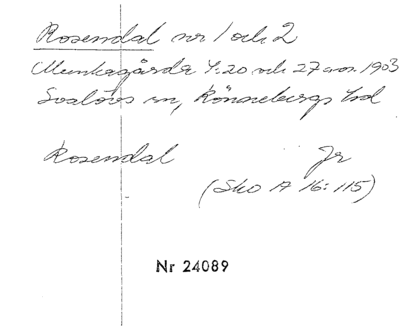 Rosendal nr 1 och 2
Munkagårda 4:20 och 27 nov. 1903
Svalövs sn, Rönnebergs hd
Rosendal Jr
(Sko A 16:115)
Nr 24089